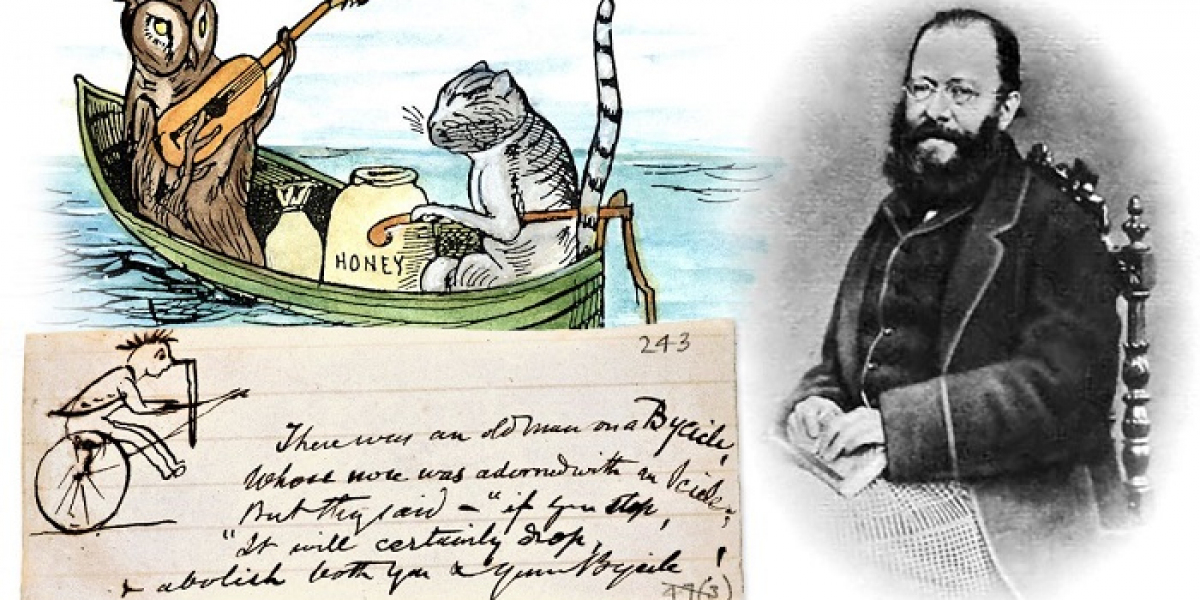 HONEY
243
There was an old man on a Bycicle,
Whose nose was adorned with an Icicle;
But they said – "if you stop,
"It will certainly drop,
& abolish both you & your Bycicle!